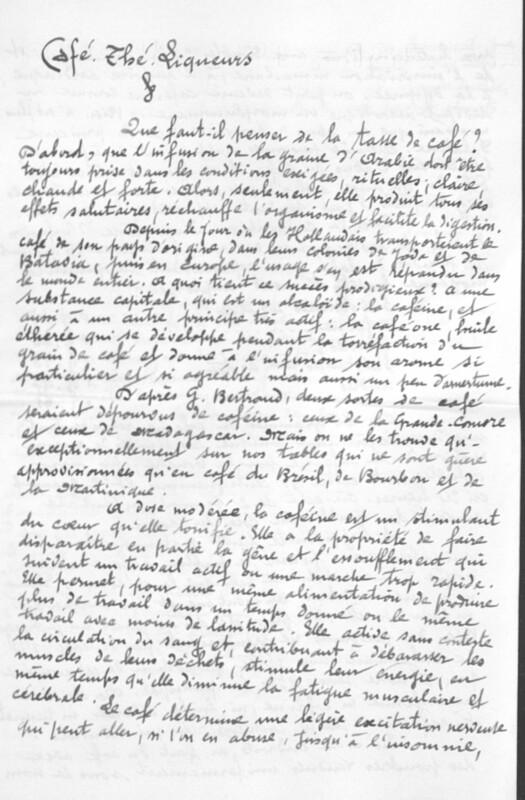 Café. Thé. Liqueurs
Que faut-il penser de la tasse de café ?
D'abord, que l'infusion de la graine d'Arabie doit être
toujours prise dans les conditions exigées, rituelles, claire
chaude et forte. Alors, seulement, elle produit tous ses
effets salutaires, réchauffe l'organisme et facilite la digestion.
Depuis le jour où les Hollandais transportèrent le
café de son pays d'origine, dans leurs colonies de et de
Batavia, puis en Europe, l'usage s'en est répandu dans
le monde entier. A quoi tient ce succès prodigieux ? A une
substance capitale, qui est un alcaloïde : la caféine, et
aussi à un autre principe très actif : la caféone, huile
éthérée qui se développe pendant la torréfaction du
grain de café et donne à l'infusion son arome si
particulier et si agréable mais aussi un peu d'amertume.
D'après G. Bertrand, deux sortes de café
seraient dépourvus de caféine : ceux de la Grande-Comore
et ceux de Madagascar. Mais on ne les trouve qu'-
exceptionnellement sur nos tables qui ne sont guère
approvisionnées qu'en café du Brésil, de Bourbon et de
la Martinique
A dose modérée, la caféine est un stimulant
du coeur qu'elle tonifie. Elle a la propriété de faire
disparaître en partie la gêne et l'essoufflement qui
suivent un travail actif ou une marche trop rapide.
Elle permet, pour une même alimentation de produire
plus de travail dans un temps donné ou le même
travail avec moins de lassitude. Elle active sans conteste
la circulation du sang et, contribuant à débarasser les
muscles de leurs déchets, stimule leur énergie, en
même temps qu'elle diminue la fatigue musculaire et
cérébrale.
Le café détermine une légère excitation nerveuse
qui peut aller, si l'on en abuse, jusqu'à l'insomnie,